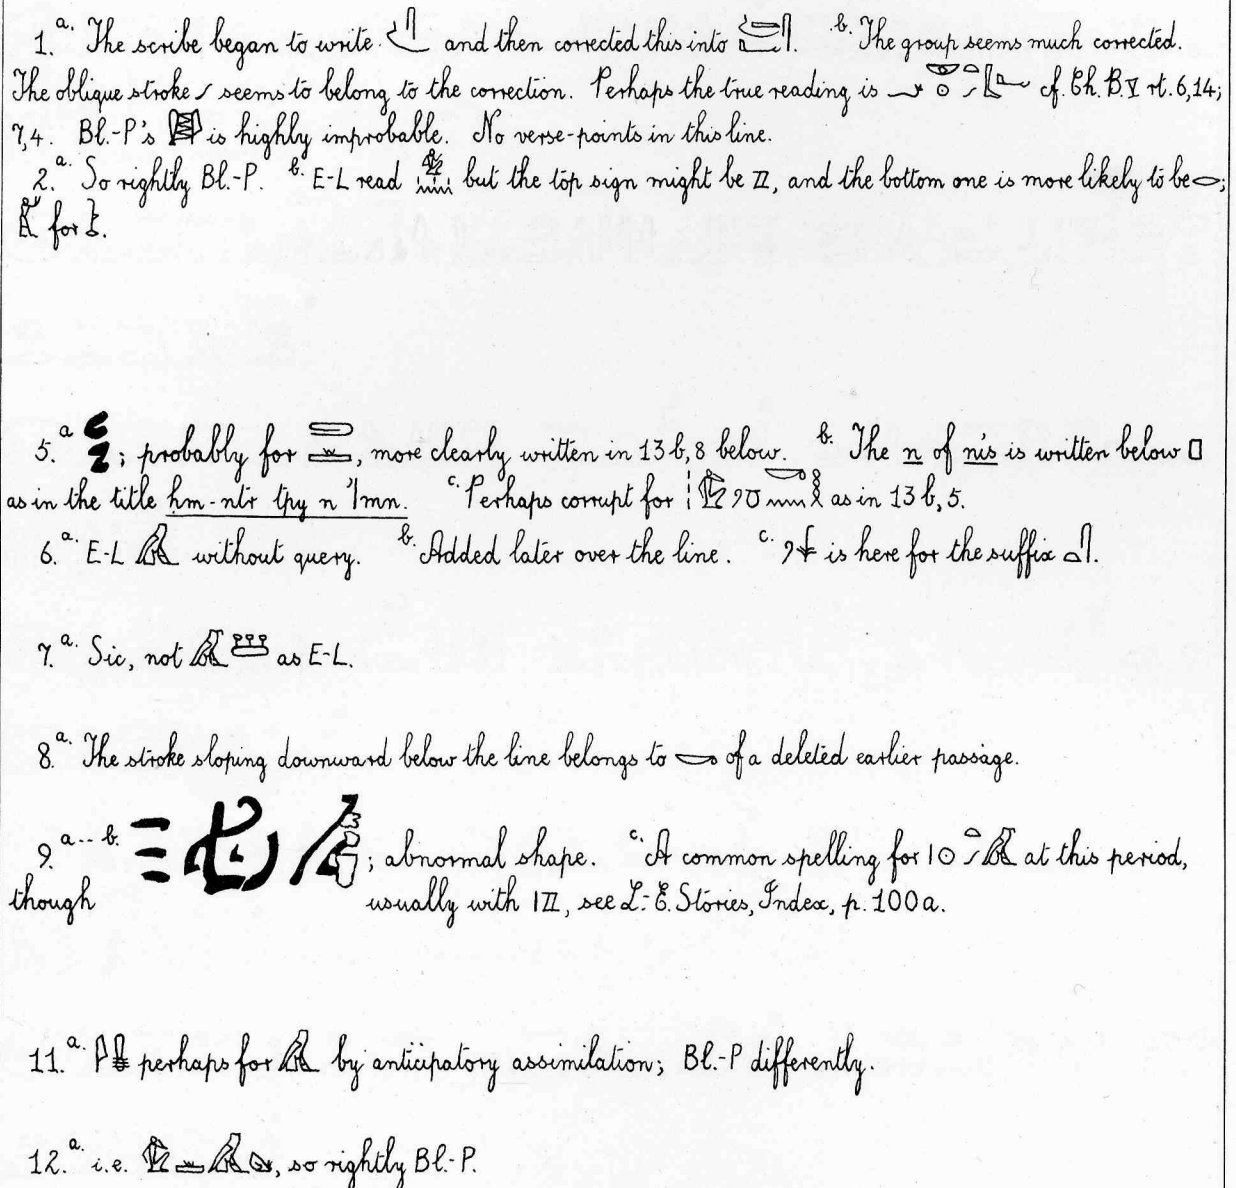 1.a. The scribe began to write and then corrected this into . b. The group seems much corrected.
The oblique stroke / seems to belong to the correction. Perhaps the true reading is cf. Ch. B. V rt. 6,14;
7,4. Bl.-P's is highly improbable. No verse-points in this line.
2.a. So rightly Bl.-P. b. E-L read but the top sign might be , and the bottom one is more likely to be ;
for .
5.a ; probably for , more clearly written in 13b,8 below. b. The n of nı͗s is written below
as in the title ḥm-nṯr tpy n ꞽmn. c. Perhaps corrupt for as in 13b,5.
6.a. E-L without query. b. Added later over the line. c. is here for the suffix .
7.a. Sic, not as E-L.
8.a. The stroke sloping downward below the line belongs to of a deleted earlier passage.
9.a--b. ; abnormal shape. c. A common spelling for at this period,
though usually with , see L.-E. Stories, Index, p. 100a.
11.a. perhaps for by anticipatory assimilation; Bl.-P differently.
12.a. i.e. , so rightly Bl.-P.